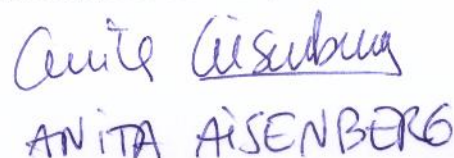 Anita Aisenberg
ANiTA AiSENBERG